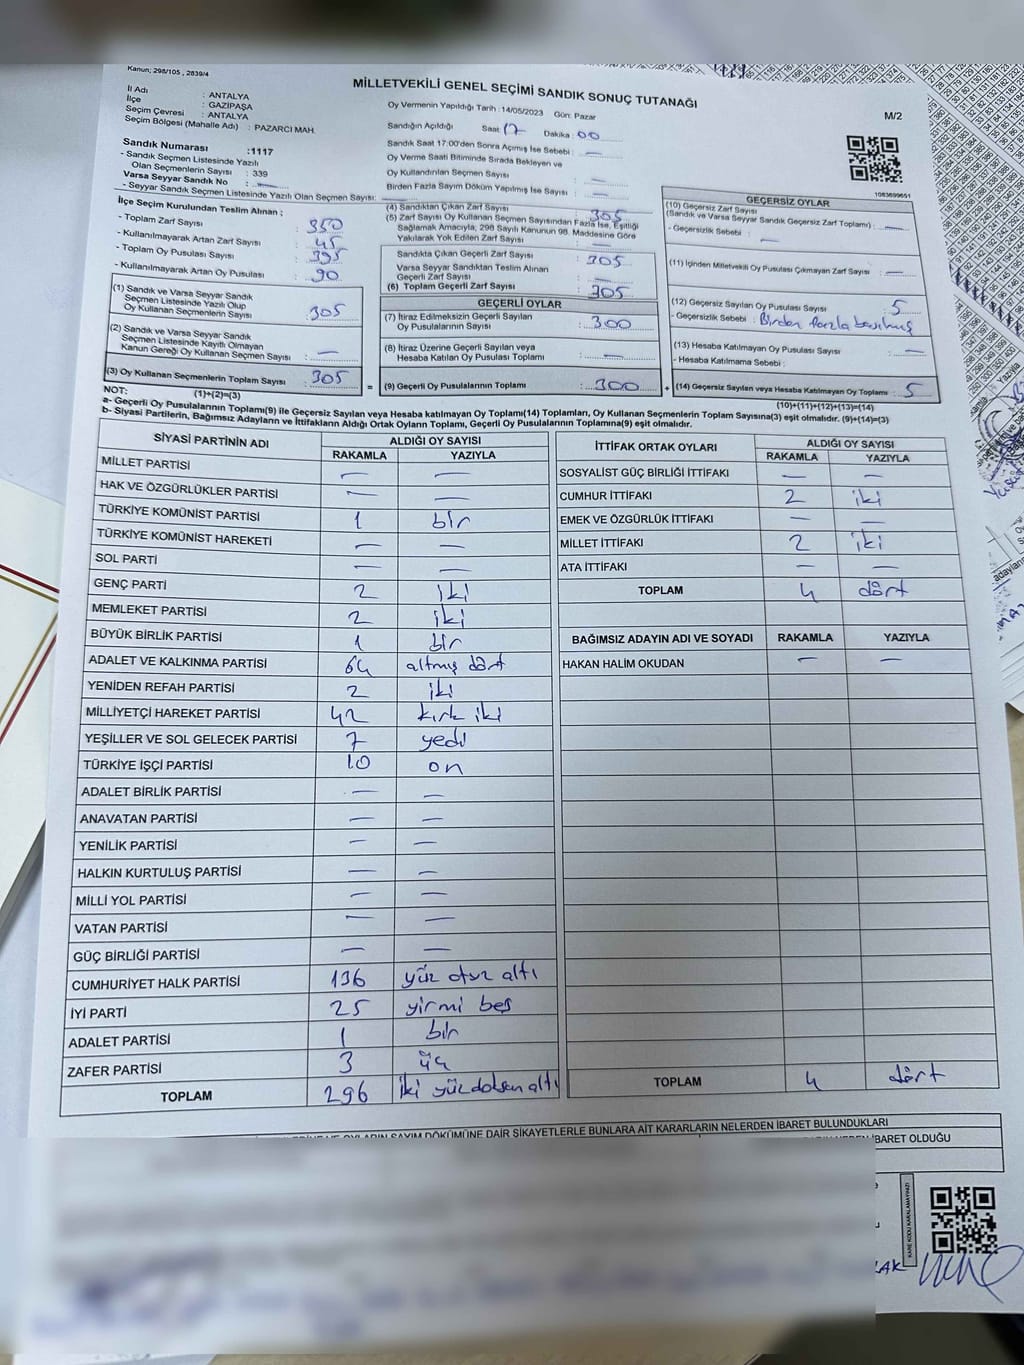 Kanun; 298/105 , 2839/4
MİLLETVEKİLİ GENEL SEÇİMİ SANDIK SONUÇ TUTANAĞI
M/2
İl Adı : ANTALYA
İlçe : GAZİPAŞA
Seçim Çevresi : ANTALYA
Seçim Bölgesi (Mahalle Adı) : PAZARCI MAH.
Oy Vermenin Yapıldığı Tarih : 14/05/2023 Gün: Pazar
Sandığın Açıldığı Saat: 17 Dakika : 00
Sandık Saat 17:00'den Sonra Açımış İse Sebebi : —
Oy Verme Saati Bitiminde Sırada Bekleyen ve
Oy Kullandırılan Seçmen Sayısı : —
Birden Fazla Sayım Döküm Yapılmış İse Sayısı : —
Sandık Numarası :1117
- Sandık Seçmen Listesinde Yazılı
Olan Seçmenlerin Sayısı : 339
Varsa Seyyar Sandık No : —
- Seyyar Sandık Seçmen Listesinde Yazılı Olan Seçmen Sayısı: —
1083699651
İlçe Seçim Kurulundan Teslim Alınan ;
- Toplam Zarf Sayısı : 350
- Kullanılmayarak Artan Zarf Sayısı : 45
- Toplam Oy Pusulası Sayısı : 395
- Kullanılmayarak Artan Oy Pusulası : 90
(1) Sandık ve Varsa Seyyar Sandık
Seçmen Listesinde Yazılı Olup
Oy Kullanan Seçmenlerin Sayısı : 305
(2) Sandık ve Varsa Seyyar Sandık
Seçmen Listesinde Kayıtlı Olmayan
Kanun Gereği Oy Kullanan Seçmen Sayısı : —
(3) Oy Kullanan Seçmenlerin Toplam Sayısı : 305 =
(1)+(2)=(3)
(4) Sandıktan Çıkan Zarf Sayısı : 305
(5) Zarf Sayısı Oy Kullanan Seçmen Sayısından Fazla İse, Eşitliği
Sağlamak Amacıyla, 298 Sayılı Kanunun 98. Maddesine Göre
Yakılarak Yok Edilen Zarf Sayısı : —
Sandıkta Çıkan Geçerli Zarf Sayısı : 305
Varsa Seyyar Sandıktan Teslim Alınan
Geçerli Zarf Sayısı : —
(6) Toplam Geçerli Zarf Sayısı : 305
GEÇERLİ OYLAR
(7) İtiraz Edilmeksizin Geçerli Sayılan
Oy Pusulalarının Sayısı : 300
(8) İtiraz Üzerine Geçerli Sayılan veya
Hesaba Katılan Oy Pusulası Toplamı : —
(9) Geçerli Oy Pusulalarının Toplamı : 300 +
GEÇERSİZ OYLAR
(10) Geçersiz Zarf Sayısı
(Sandık ve Varsa Seyyar Sandık Geçersiz Zarf Toplamı) : —
- Geçersizlik Sebebi : —
(11) İçinden Milletvekili Oy Pusulası Çıkmayan Zarf Sayısı : —
(12) Geçersiz Sayılan Oy Pusulası Sayısı : 5
- Geçersizlik Sebebi : Birden fazla basılmış
(13) Hesaba Katılmayan Oy Pusulası Sayısı : —
- Hesaba Katılmama Sebebi :
(14) Geçersiz Sayılan veya Hesaba Katılmayan Oy Toplamı : 5
(10)+(11)+(12)+(13)=(14)
NOT:
a- Geçerli Oy Pusulalarının Toplamı(9) ile Geçersiz Sayılan veya Hesaba katılmayan Oy Toplamı(14) Toplamları, Oy Kullanan Seçmenlerin Toplam Sayısına(3) eşit olmalıdır. (9)+(14)=(3)
b- Siyasi Partilerin, Bağımsız Adayların ve İttifakların Aldığı Ortak Oyların Toplamı, Geçerli Oy Pusulalarının Toplamına(9) eşit olmalıdır.
SİYASİ PARTİNİN ADI ALDIĞI OY SAYISI
RAKAMLA YAZIYLA
MİLLET PARTİSİ — —
HAK VE ÖZGÜRLÜKLER PARTİSİ — —
TÜRKİYE KOMÜNİST PARTİSİ 1 bir
TÜRKİYE KOMÜNİST HAREKETİ — —
SOL PARTİ — —
GENÇ PARTİ 2 iki
MEMLEKET PARTİSİ 2 iki
BÜYÜK BİRLİK PARTİSİ 1 bir
ADALET VE KALKINMA PARTİSİ 64 altmış dört
YENİDEN REFAH PARTİSİ 2 iki
MİLLİYETÇİ HAREKET PARTİSİ 42 kırk iki
YEŞİLLER VE SOL GELECEK PARTİSİ 7 yedi
TÜRKİYE İŞÇİ PARTİSİ 10 on
ADALET BİRLİK PARTİSİ — —
ANAVATAN PARTİSİ — —
YENİLİK PARTİSİ — —
HALKIN KURTULUŞ PARTİSİ — —
MİLLİ YOL PARTİSİ — —
VATAN PARTİSİ — —
GÜÇ BİRLİĞİ PARTİSİ — —
CUMHURİYET HALK PARTİSİ 136 yüz otuz altı
İYİ PARTİ 25 yirmi beş
ADALET PARTİSİ 1 bir
ZAFER PARTİSİ 3 üç
TOPLAM 296 iki yüz doksan altı
İTTİFAK ORTAK OYLARI ALDIĞI OY SAYISI
RAKAMLA YAZIYLA
SOSYALİST GÜÇ BİRLİĞİ İTTİFAKI — —
CUMHUR İTTİFAKI 2 iki
EMEK VE ÖZGÜRLÜK İTTİFAKI — —
MİLLET İTTİFAKI 2 iki
ATA İTTİFAKI — —
TOPLAM 4 dört
BAĞIMSIZ ADAYIN ADI VE SOYADI RAKAMLA YAZIYLA
HAKAN HALİM OKUDAN — —
TOPLAM 4 dört
OYLARIN SAYIM DÖKÜMÜNE DAİR ŞİKAYETLERLE BUNLARA AİT KARARLARIN NELERDEN İBARET BULUNDUKLARI
İBARET OLDUĞU
KARE KODU KARALAMAYINIZ!